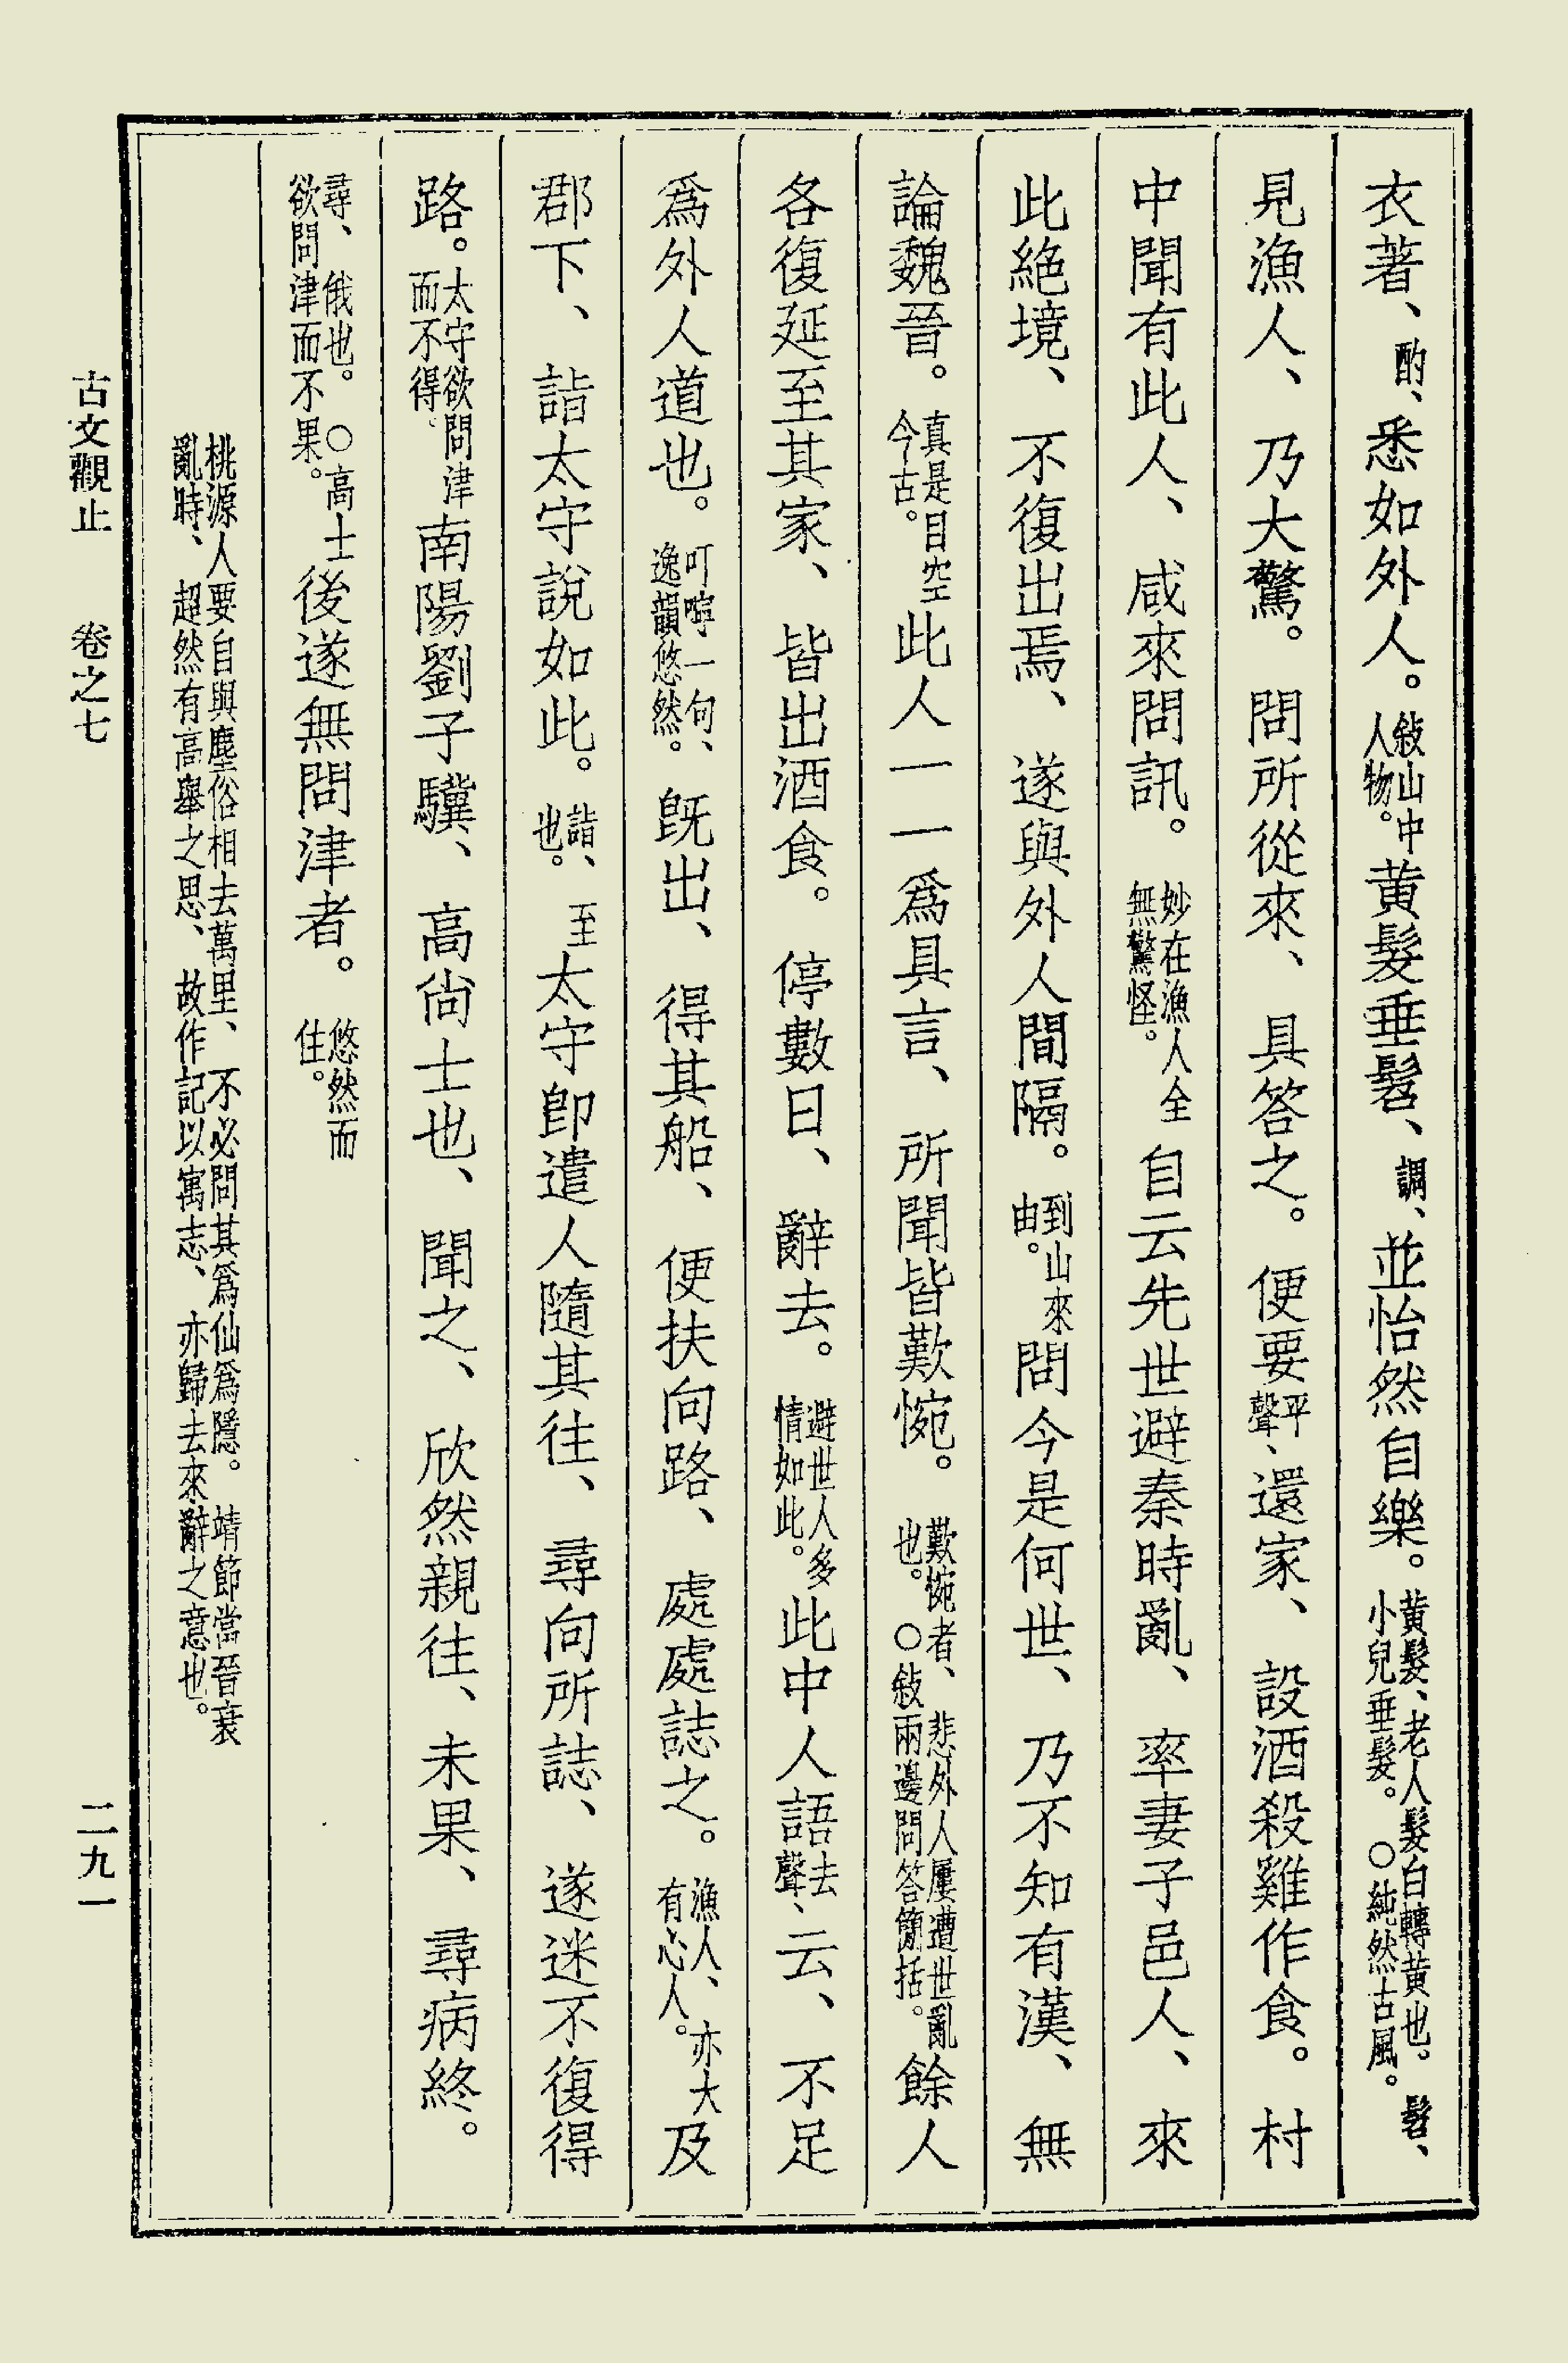 衣著、酌、悉如外人。敍山中人物。黄髮垂髫、調、並怡然自樂。黄髮、老人髮白轉黄也。髫、小兒垂髮。○純然古風。
見漁人、乃大驚。問所從來、具答之。便要平聲、還家、設酒殺雞作食。村
中聞有此人、咸來問訊。妙在漁人全無驚怪。自云先世避秦時亂、率妻子邑人、來
此絕境、不復出焉、遂與外人間隔。到山來由。問今是何世、乃不知有漢、無
論魏晉。真是目空今古。此人一一爲具言、所聞皆歎惋。歎惋者、悲外人屢遭世亂也。○敍兩邊問答簡括。餘人
各復延至其家、皆出酒食。停數日、辭去。避世人多情如此。此中人語去聲、云、不足
爲外人道也。叮嚀一句、逸韻悠然。旣出、得其船、便扶向路、處處誌之。漁人、亦大有心人。及
郡下、詣太守說如此。詣、至也。太守卽遣人隨其往、尋向所誌、遂迷不復得
路。太守欲問津而不得。南陽劉子驥、高尙士也、聞之、欣然親往、未果、尋病終。
尋、俄也。○高士欲問津而不果。後遂無問津者。悠然而住。
桃源人要自與塵俗相去萬里、不必問其爲仙爲隱。靖節當晉衰
亂時、超然有高舉之思、故作記以寓志、亦歸去來辭之意也。
古文觀止　卷之七　二九一